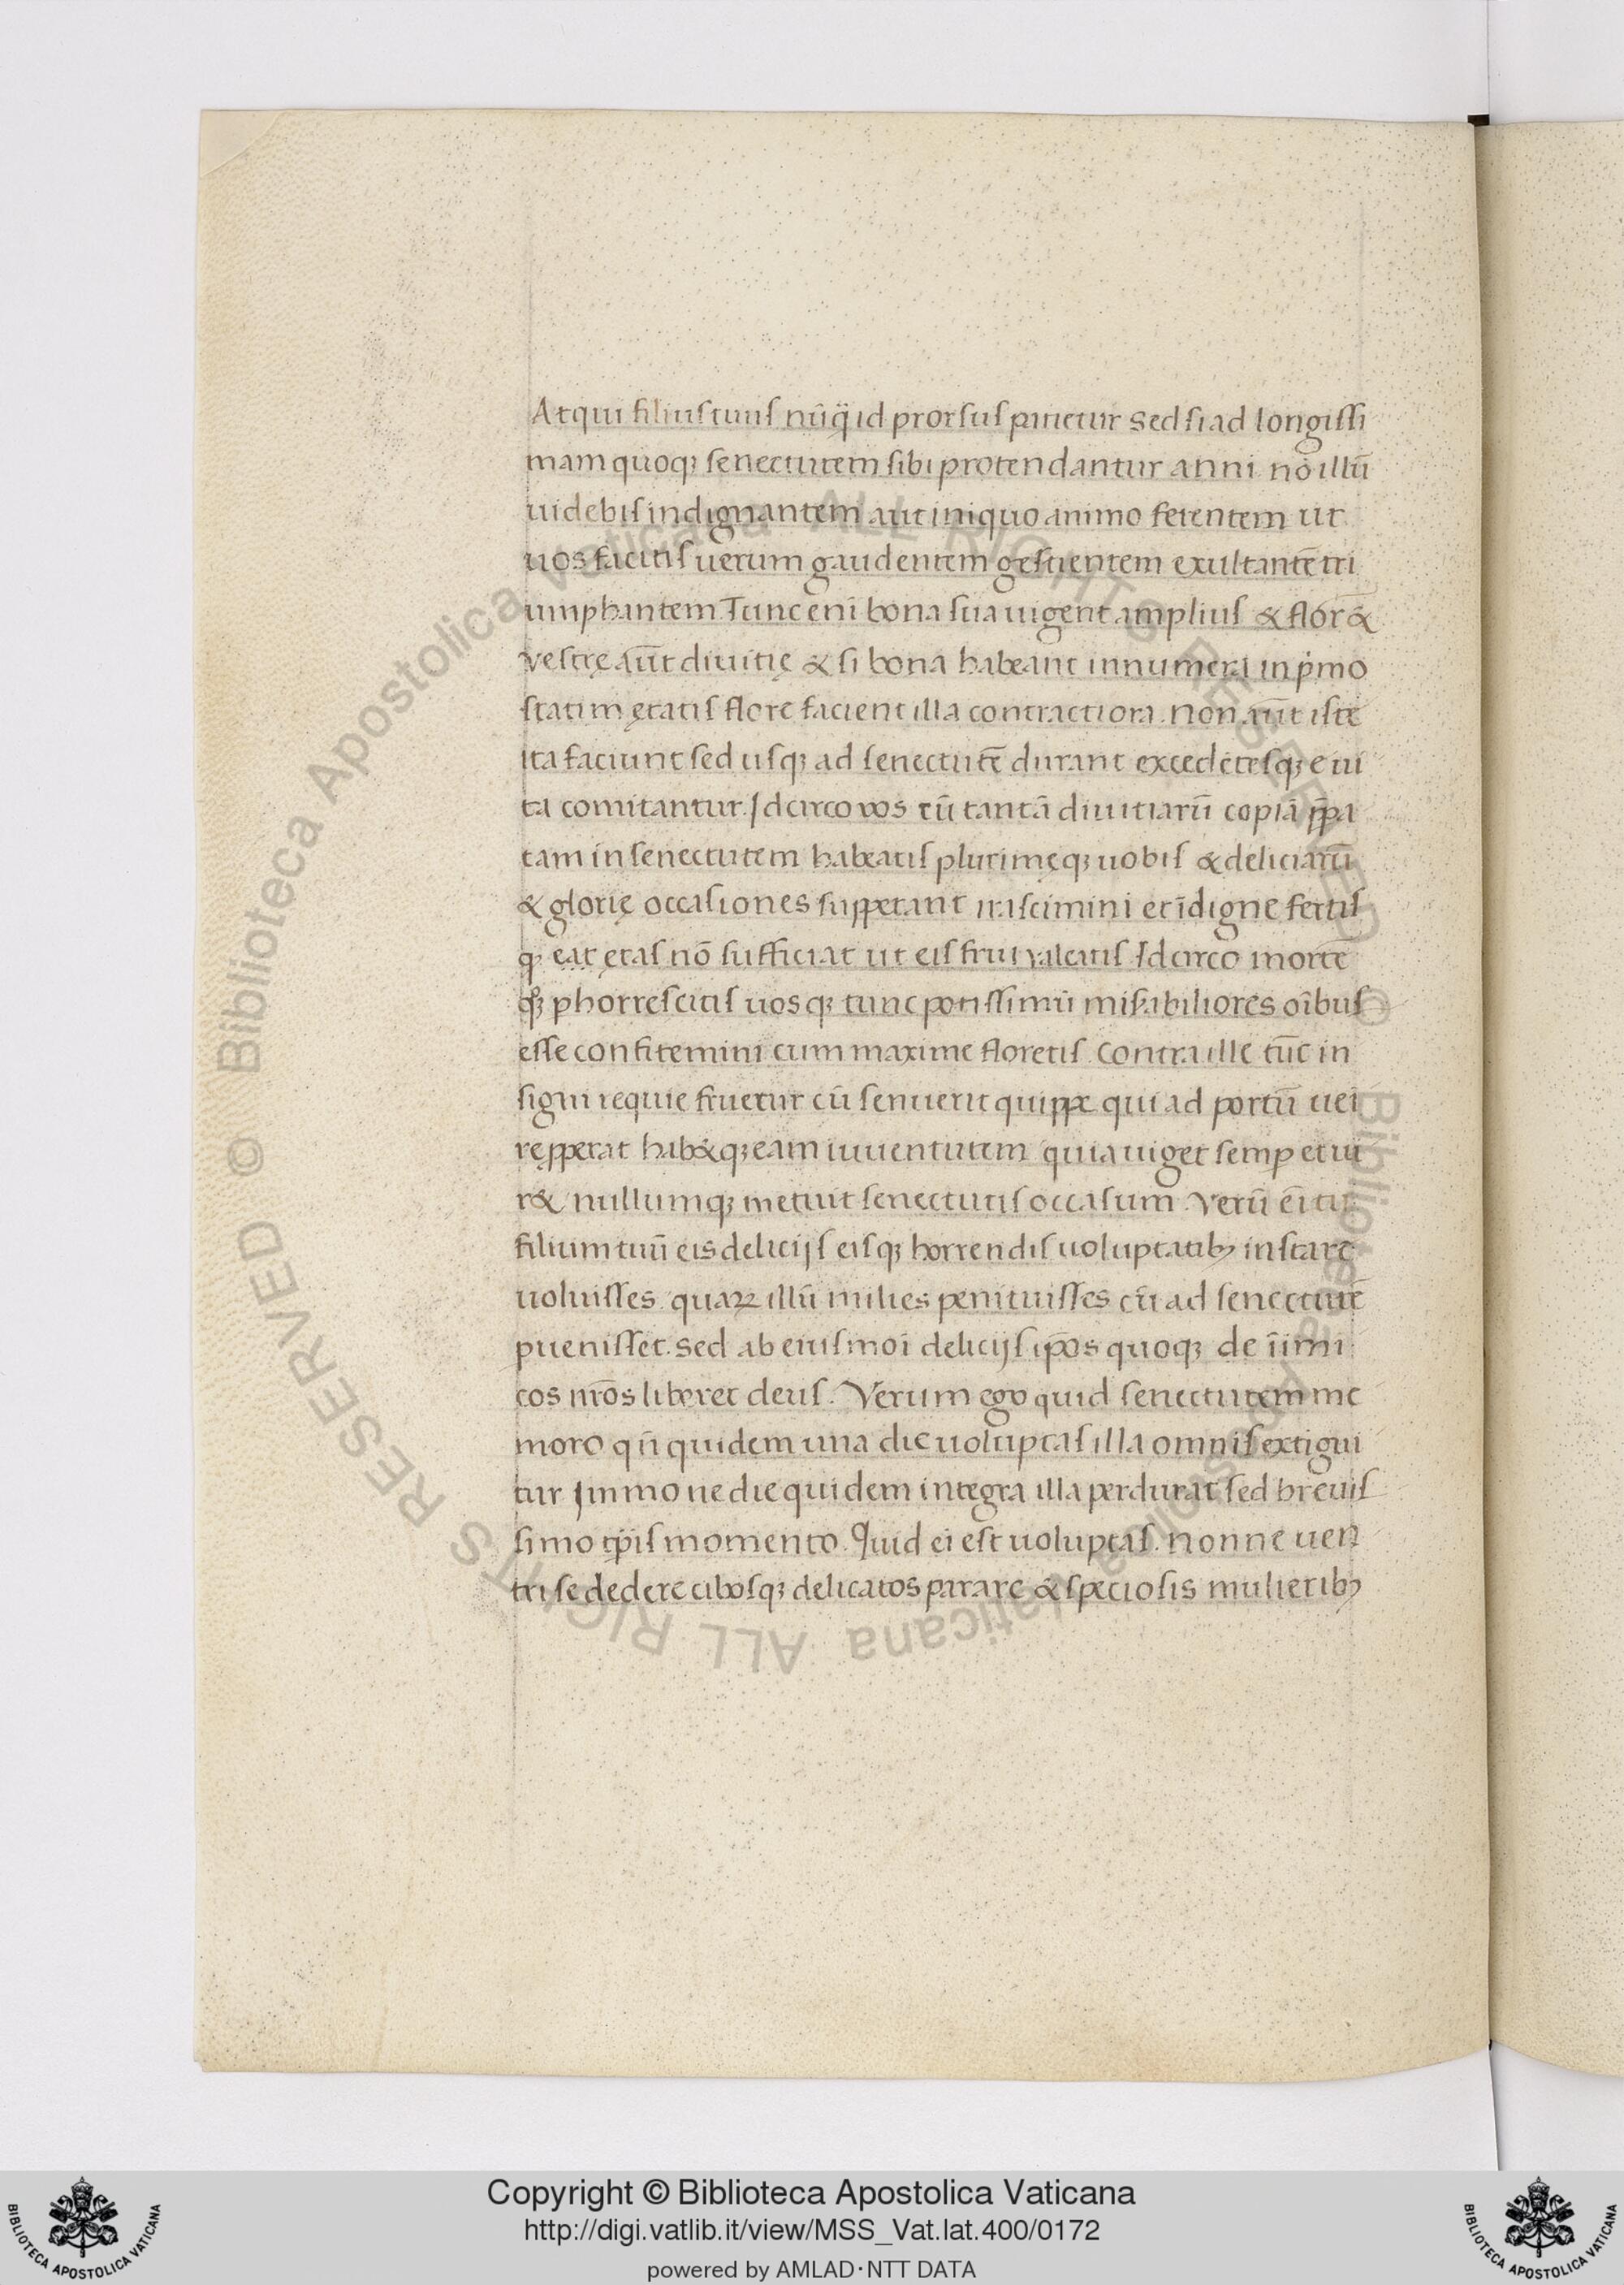 Atqui filius tuus nūq̈id prorsus patietur sed si ad longissi
mam quoq; senectutem sibi protendantur anni nō illū
uidebis indignantem aut iniquo animo ferentem ut
uos facitis uerum gaudentem gestientem exultantē tri
umphantem. Tunc enī bona sua uigent amplius & flor&
vestrę aūt diuitię & si bona habeant innumera in pͥmo
statim ętatis flore facient illa contractiora. Non aūt iste
ita faciunt sed usq; ad senectutē durant excedētesq; e ui
ta comitantur. Idcirco vos cū tantā diuitiarū copiā p̄pa
tam in senectutem habeatis plurimęq; uobis & deliciarū
& glorię occasiones suppetant irascimini et īdigne fertis
q; eat ętas nō sufficiat ut eis frui valeatis Idcirco mortē
phorrescitis uosq; tunc potissimū misabiliores oībus
esse confitemini cum maxime floretis. Contra ille tūc in
signi requie fruetur cū senuerit quippe qui ad portū uei
rępperat hab&q; eam iuuentutem quia uiget semp et ui
r& nullumq; metuit senectutis occasum. Verū eī tu
filium tuū eis delicijs eisq; horrendis uoluptatibꝫ instare
uoluisses quaꝝ illū milies penituisses cū ad senectutē
puenisset. Sed ab eiusmoī delicijs ip̄os quoq; de iīmi
cos nr̄os liberet deus. Verum ego quid senectutem me
moro qn̄ quidem una die uoluptas illa omnis extigui
tur Immo ne die quidem integra illa perdurat sed breuis
simo tp̄is momento. Quid ei est uoluptas. Nonne uen
tri se dedere cibosq; delicatos parare & speciosis mulieribꝫ
Copyright © Biblioteca Apostolica Vaticana
http://digi.vatlib.it/view/MSS_Vat.lat.400/0172
powered by AMLAD·NTT DATA
BIBLIOTECA APOSTOLICA VATICANA
BIBLIOTECA APOSTOLICA VATICANA
© Biblioteca Apostolica Vaticana ALL RIGHTS RESERVED
© Biblioteca Apostolica Vaticana ALL RIGHTS RESERVED